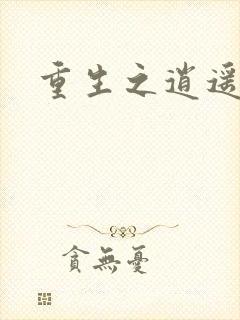 重生之逍遥
貪無憂